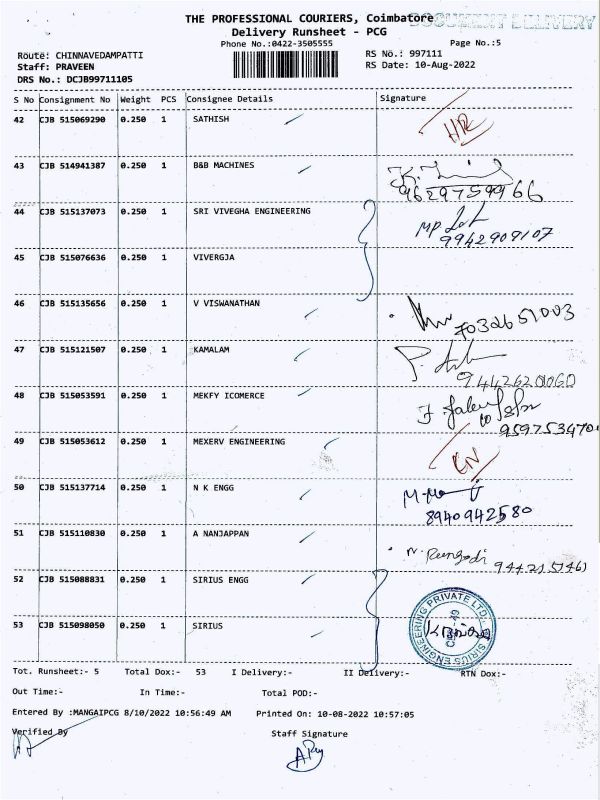 THE PROFESSIONAL COURIERS, Coimbatore
DOCUMENT DELIVERY
Delivery Runsheet - PCG
Phone No.:0422-3505555
Page No.:5
Route: CHINNAVEDAMPATTI
RS No.: 997111
Staff: PRAVEEN
RS Date: 10-Aug-2022
DRS No.: DCJB99711105
S No Consignment No Weight PCS Consignee Details Signature
42 CJB 515069290 0.250 1 SATHISH
43 CJB 514941387 0.250 1 B&B MACHINES
9629759966
44 CJB 515137073 0.250 1 SRI VIVEGHA ENGINEERING
9942909107
45 CJB 515076636 0.250 1 VIVERGJA
46 CJB 515135656 0.250 1 V VISWANATHAN
7032651003
47 CJB 515121507 0.250 1 KAMALAM
48 CJB 515053591 0.250 1 MEKFY ICOMERCE
49 CJB 515053612 0.250 1 MEXERV ENGINEERING
50 CJB 515137714 0.250 1 N K ENGG
8940942580
51 CJB 515110830 0.250 1 A NANJAPPAN
52 CJB 515088831 0.250 1 SIRIUS ENGG
53 CJB 515098050 0.250 1 SIRIUS
SIRIUS ENGINEERING PRIVATE LTD.
Tot. Runsheet:- 5 Total Dox:- 53 I Delivery:- II Delivery:- RTN Dox:-
Out Time:- In Time:- Total POD:-
Entered By :MANGAIPCG 8/10/2022 10:56:49 AM Printed On: 10-08-2022 10:57:05
Verified By Staff Signature